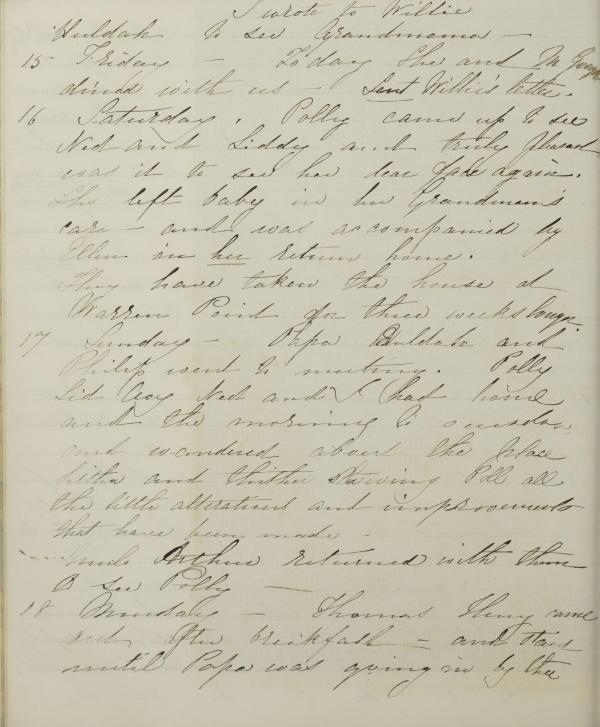 I wrote to Willie
Huldah to see Grandmama -
15 Friday - To day She and
dined with us - Sent Willie's letter.
16 Saturday. Polly came up to see
Ned and Liddy and truly pleasant
was it to see her dear face again.
She left baby in her Grandmam's
care - and was accompanied by
Ellen in her return home.
They have taken the house at
Warren Point for three weeks longer.
17 Sunday - Papa Huldah and
Philip went to meeting. Polly
Lid Ned and I had home
and the morning to ourselves
and wandered about the place
hither and thither showing Poll all
the little alterations and improvements
that have been made.
Uncle Arthur returned with them
to see Polly -
18 Monday - Thomas came
out after breakfast = and staid
until Papa was going in by the